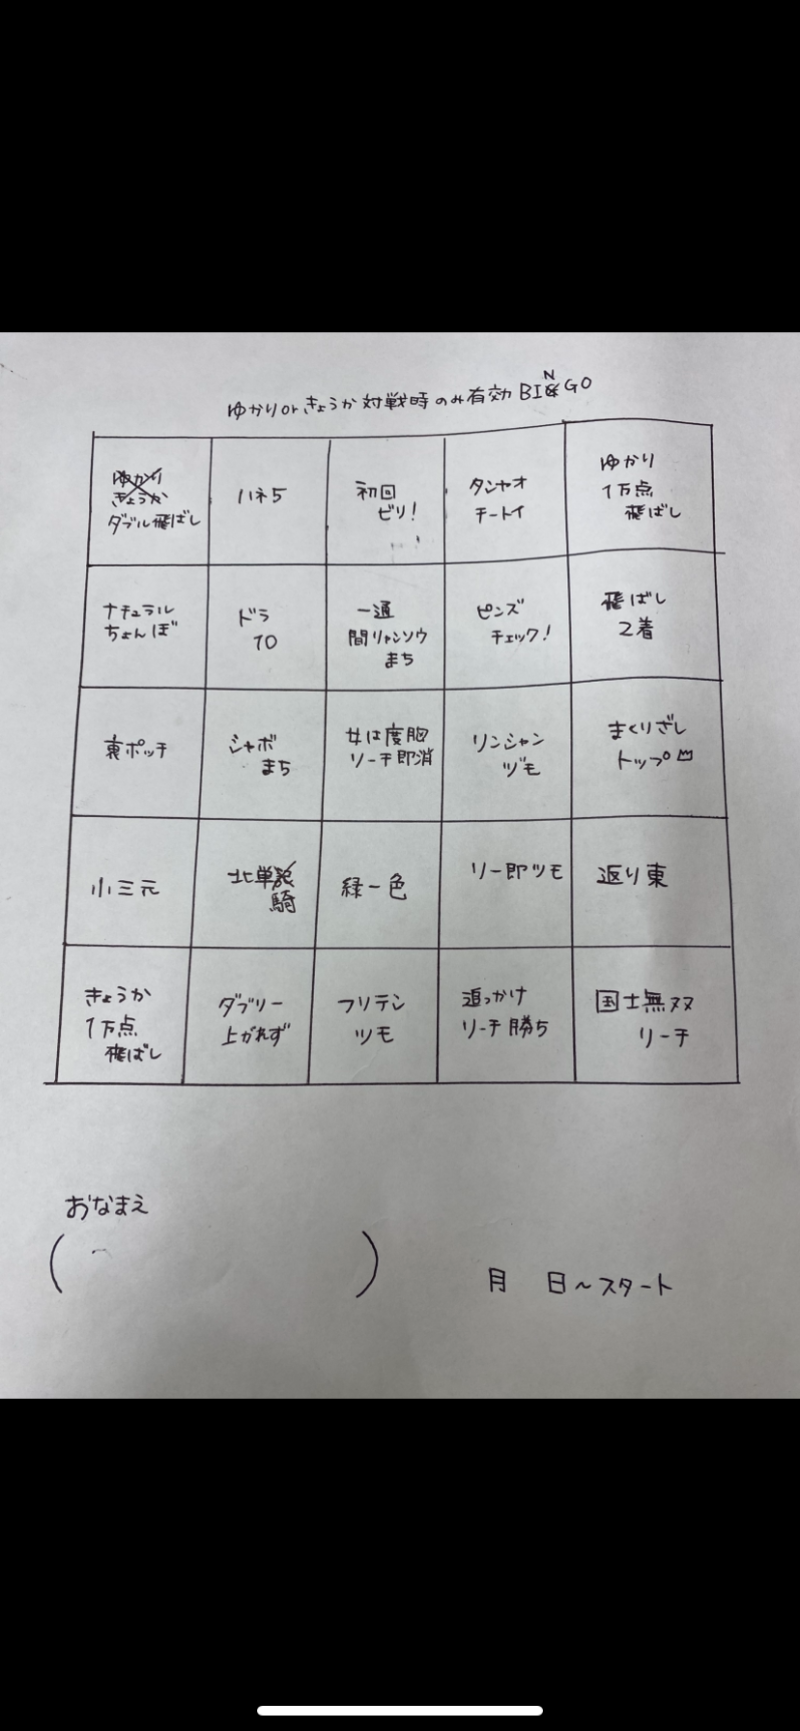 ゆかりorきょうか対戦時のみ有効 BINGO
ゆかり
きょうか
ダブル飛ばし
ハネ5
初回
ビリ!
タンヤオ
チートイ
ゆかり
1万点
飛ばし
ナチュラル
ちょんぼ
ドラ
10
一通
間リャンソウ
まち
ピンズ
チェック!
飛ばし
2着
裏ポッチ
シャボ
まち
女は度胸
リーチ即消
リンシャン
ヅモ
まくりざし
トップ
小三元
北単
騎
緑一色
リー即ツモ
返り東
きょうか
1万点
飛ばし
ダブリー
上がれず
フリテン
ツモ
追っかけ
リーチ勝ち
国士無双
リーチ
おなまえ
( )
月 日~スタート